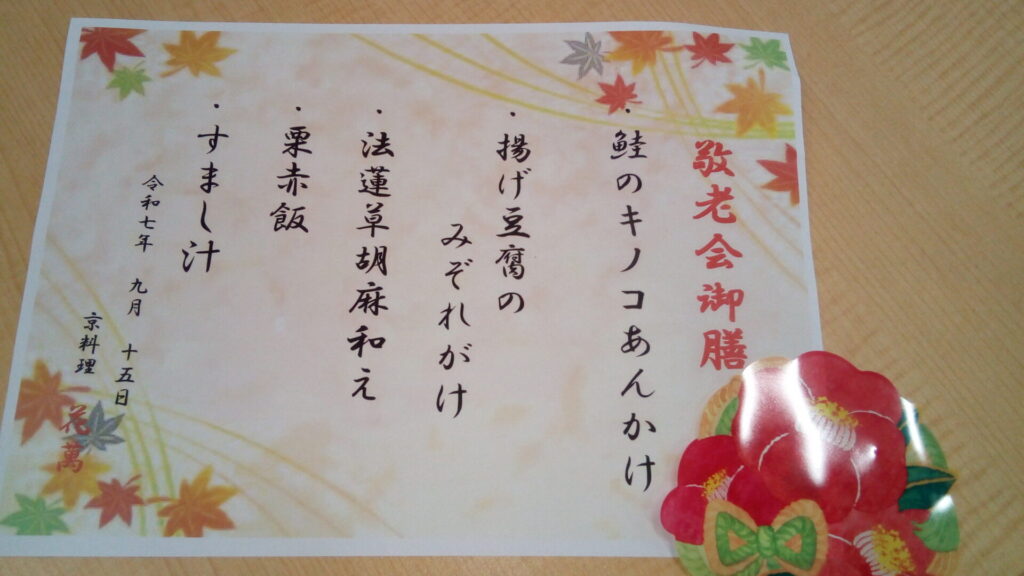 敬老会御膳
・鮭のキノコあんかけ
・揚げ豆腐の
みぞれがけ
・法蓮草胡麻和え
・栗赤飯
・すまし汁
令和七年 九月 十五日
京料理 花萬